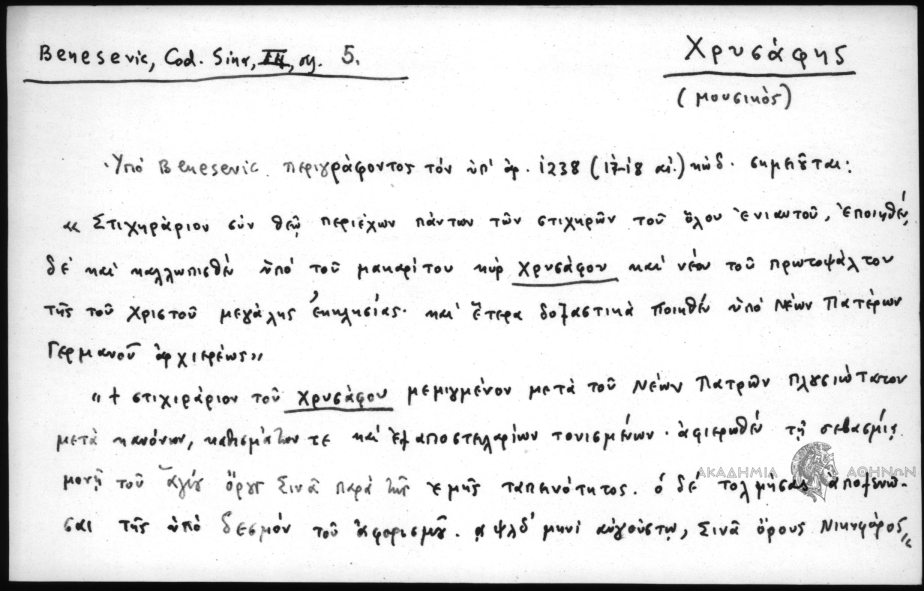 Benesevic, Cod. Sina, III, ση. 5.
Χρυσάφης
(μουσικὸς)
Ὑπὸ Benesevic περιγράφοντος τὸν ὑπ' ἀρ. 1238 (17-18 αἰ.) κώδ. σημειοῦται:
« Στιχηράριον σὺν θεῷ περιέχων πάντων τῶν στιχηρῶν τοῦ ὅλου ἐνιαυτοῦ, ἐποιηθέν
δὲ καὶ καλλωπισθὲν ὑπὸ τοῦ μακαρίτου κὺρ Χρυσάφου καὶ νέου τοῦ πρωτοψάλτου
τῆς τοῦ Χριστοῦ μεγάλης ἐκκλησίας· καὶ ἕτερα δοξαστικὰ ποιηθὲν ὑπὸ Νέων Πατέρων
Γερμανοῦ ἀρχιερέως»
« + στιχιράριον τοῦ Χρυσάφου μεμιγμένον μετὰ τοῦ Νέων Πατρῶν πλυσιώτατον
μετὰ κανόνων, καθισμάτων τε καὶ ἐξαποστελαρίων τονισμένων · ἀφιερωθὲν τῇ σεβασμίᾳ
μονῇ τοῦ ἁγίου ὄρους Σινᾶ παρὰ τῆς ἐμῆς ταπεινότητος. ὁ δὲ τολμήσας ἀποξενῶ-
σαι τῆς ὑπὸ δεσμὸν τοῦ ἀφορισμοῦ. αψλδ' μηνὶ αὐγούστῳ, Σινᾶ ὄρους Νικηφόρος «
ΑΚΑΔΗΜΙΑ ΑΘΗΝΩΝ